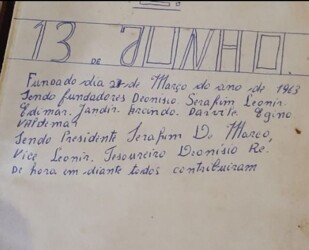 13 DE JUNHO.
Fundado dia 27 de Março do ano de 1963
Sendo fundadores Dionisio. Serafim Leonir.
Edimar. Jandir. Arcindo. Darvile Egino
Valdemar
Sendo Presidente Serafim De Marco,
Vice Leonir. Tesoureiro Dionisio Re.
De hora em diante todos contribuiram